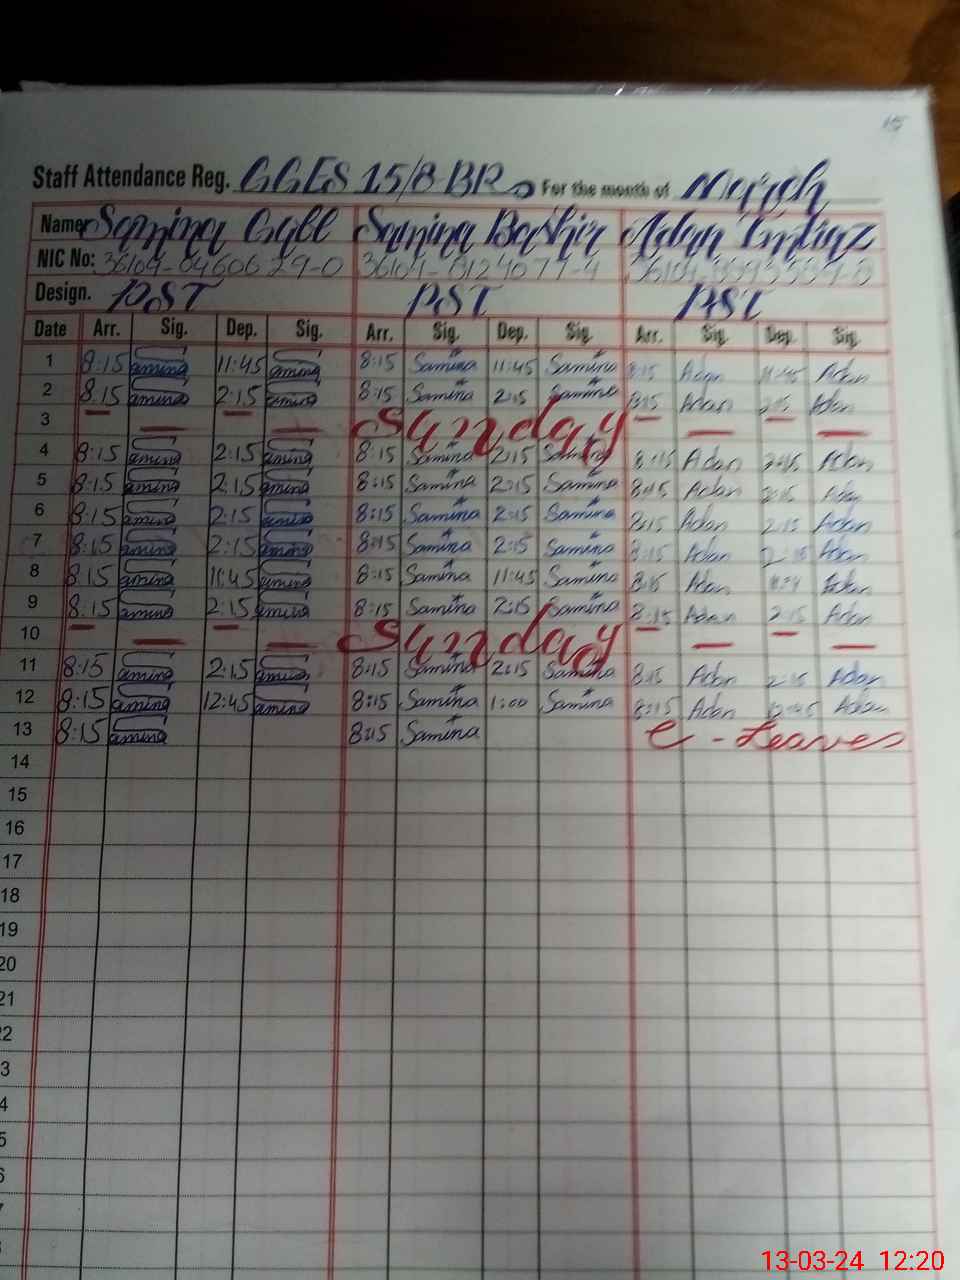 15
Staff Attendance Reg. GGES 15/8-BR For the month of March
Name Samina Gull Samina Bashir Adan Imtiaz
NIC No: 36104-0460629-0 36104-8124077-4 36104
Design. PST PST PST
Date Arr. Sig. Dep. Sig. Arr. Sig. Dep. Sig. Arr. Sig. Dep. Sig.
1 8:15 Samina 11:45 Samina 8:15 Samina 11:45 Samina 8:15 Adan 11:45 Adan
2 8:15 Samina 2:15 Samina 8:15 Samina 2:15 Samina 8:15 Adan 2:15 Adan
3 — — — — Sunday — — — —
4 8:15 Samina 2:15 Samina 8:15 Samina 2:15 Samina 8:15 Adan 2:15 Adan
5 8:15 Samina 2:15 Samina 8:15 Samina 2:15 Samina 8:15 Adan 2:15 Adan
6 8:15 Samina 2:15 Samina 8:15 Samina 2:15 Samina 8:15 Adan 2:15 Adan
7 8:15 Samina 2:15 Samina 8:15 Samina 2:15 Samina 8:15 Adan 2:15 Adan
8 8:15 Samina 11:45 Samina 8:15 Samina 11:45 Samina 8:15 Adan Adan
9 8:15 Samina 2:15 Samina 8:15 Samina 2:15 Samina 8:15 Adan 2:15 Adan
10 — — — — Sunday — — — —
11 8:15 Samina 2:15 Samina 8:15 Samina 2:15 Samina 8:15 Adan 2:15 Adan
12 8:15 Samina 12:45 Samina 8:15 Samina 1:00 Samina 8:15 Adan 12:45 Adan
13 8:15 Samina 8:15 Samina C-Leaves
14
15
16
17
18
19
20
21
2
3
4
5
6
13-03-24 12:20